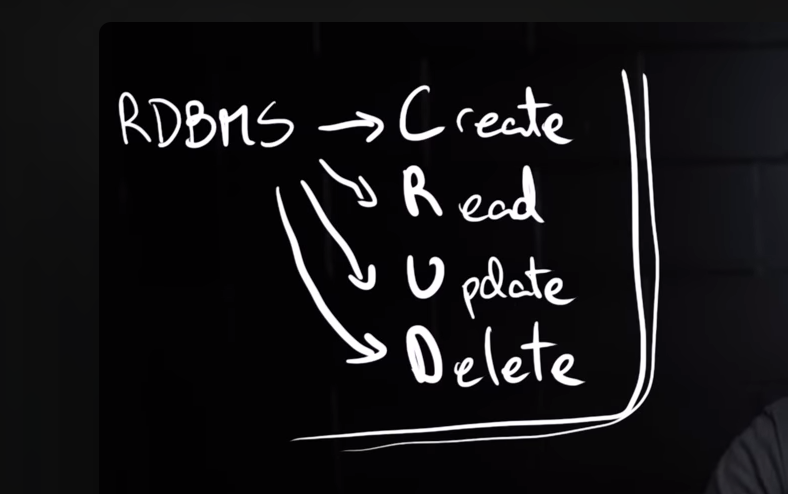 RDBMS → Create
Read
Update
Delete